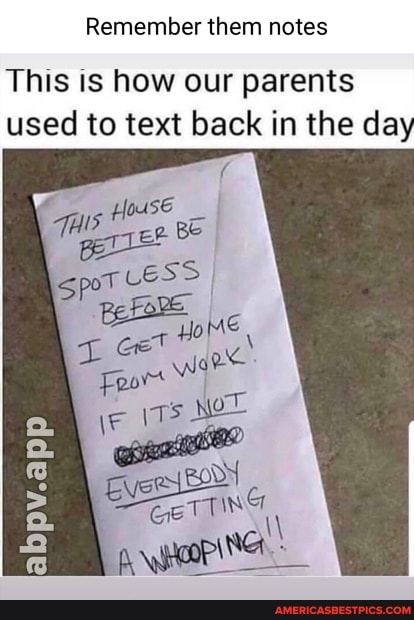 Remember them notes
This is how our parents
used to text back in the day
THIS HOUSE
BETTER BE
SPOTLESS
BEFORE
I GET HOME
FROM WORK!
IF IT'S NOT
EVERYBODY
GETTING
A WHOOPING!!
abpv.app
AMERICASBESTPICS.COM